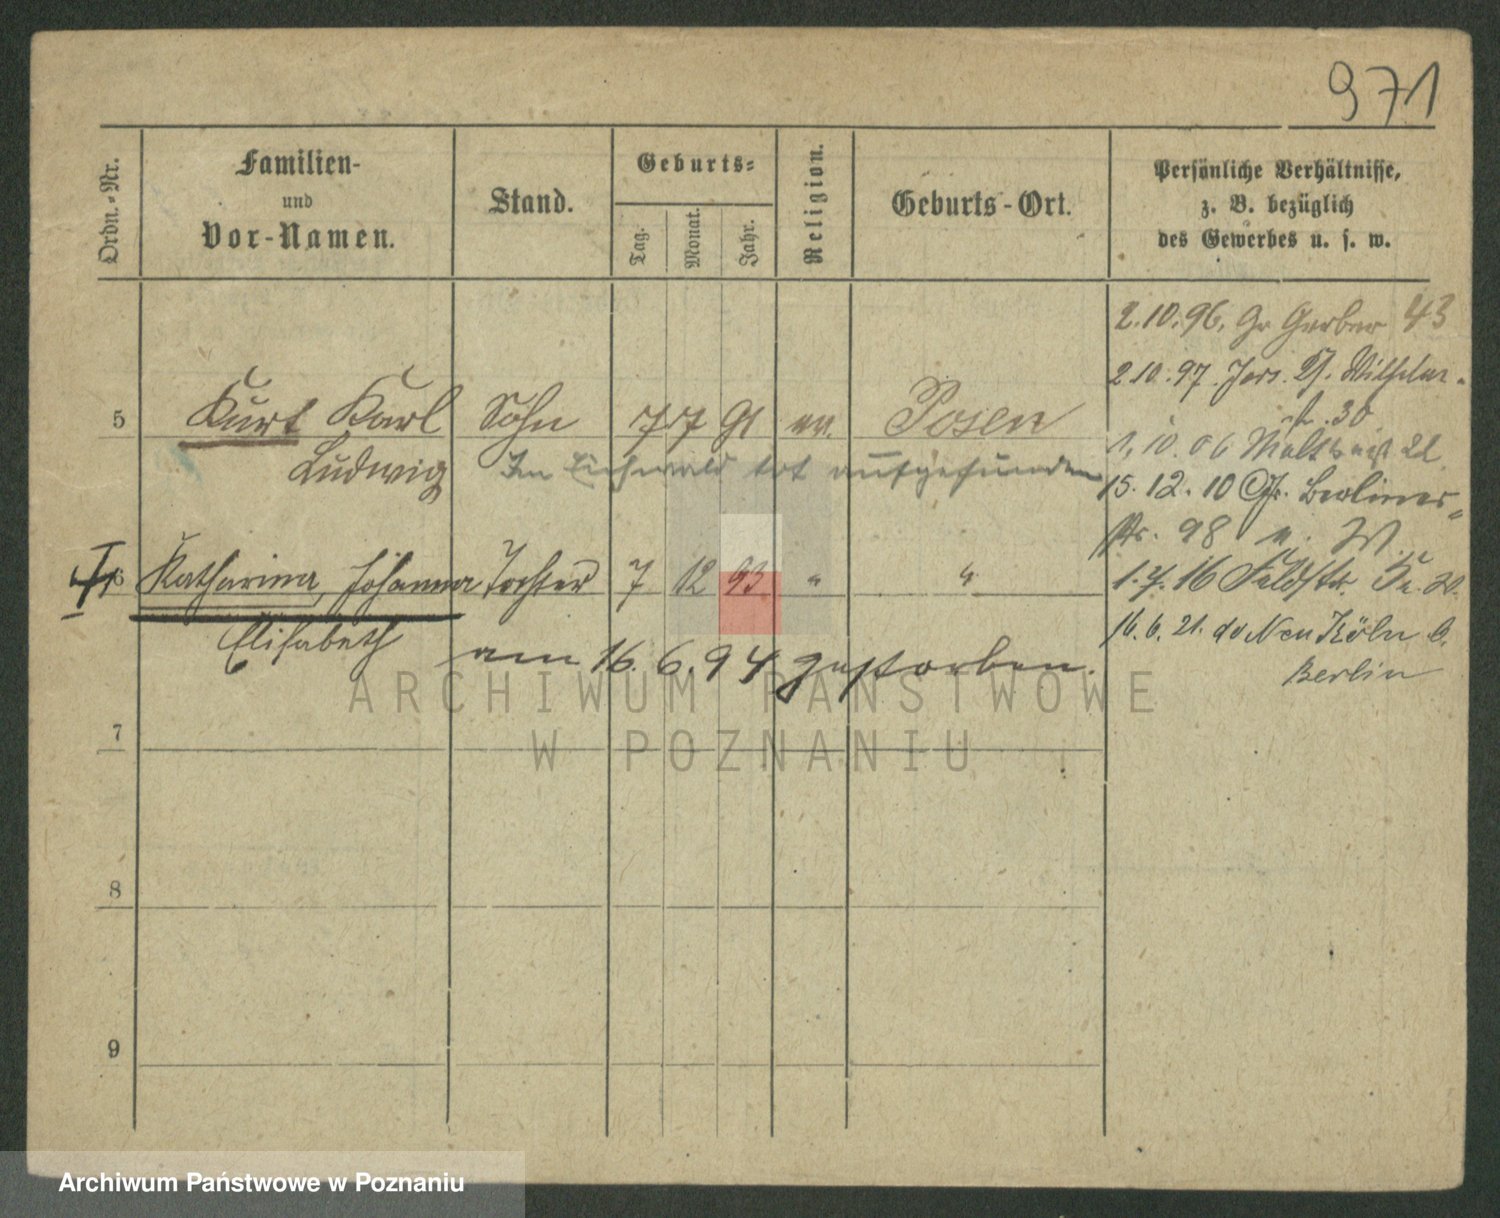 971
Ordn.-Nr.
Familien-
und
Vor-Namen.
Stand.
Geburts-
Tag.
Monat.
Jahr.
Religion.
Geburts-Ort.
Persönliche Verhältnisse,
z. B. bezüglich
des Gewerbes u. s. w.
2.10.96. Gr Gerber 43
2.10.97. Wilhelm-
str. 30
5 Kurt Karl Sohn 7 7 91 ev. Posen
Ludwig Im Eichwald tot aufgefunden
1.10.06 22
15.12.10 Gr. Berliner-
str. 98 W
6 Katharina, Johanna Tochter 7 12 93 " "
Elisabeth
am 16.6.94 gestorben.
16 Feldstr.
16.6.21. Neu Köln b.
Berlin
7
8
9
ARCHIWUM PAŃSTWOWE
W POZNANIU
Archiwum Państwowe w Poznaniu